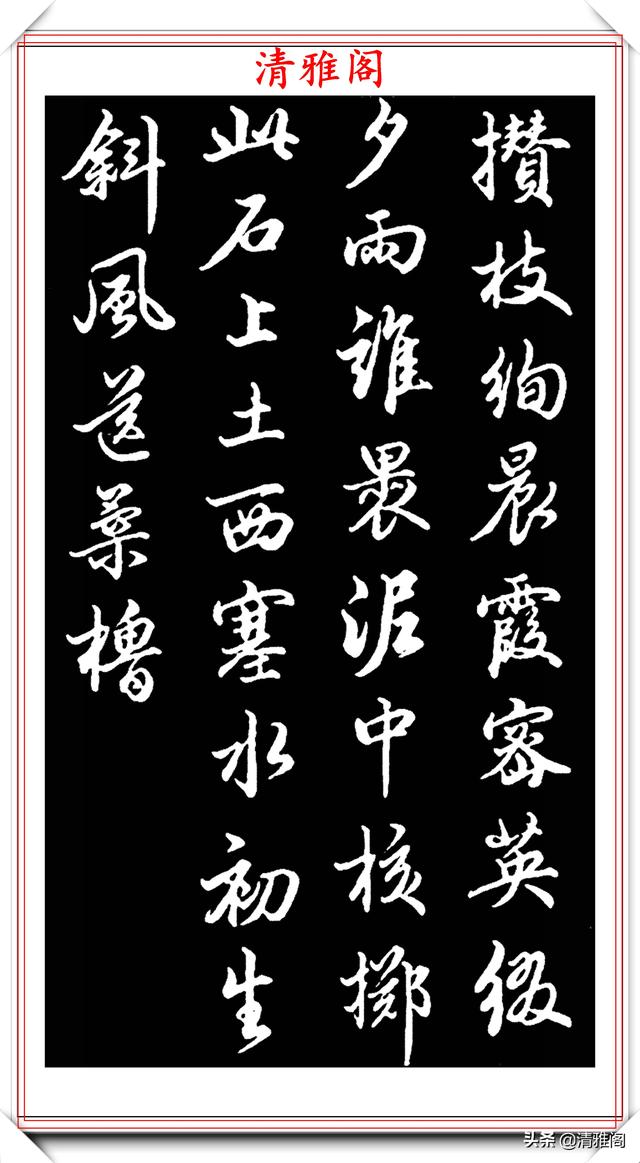 清雅阁
攢枝絢晨霞密英綴
夕雨誰裹泥中核擲
此石上土西塞水初生
斜風送葉櫓
头条 @清雅阁